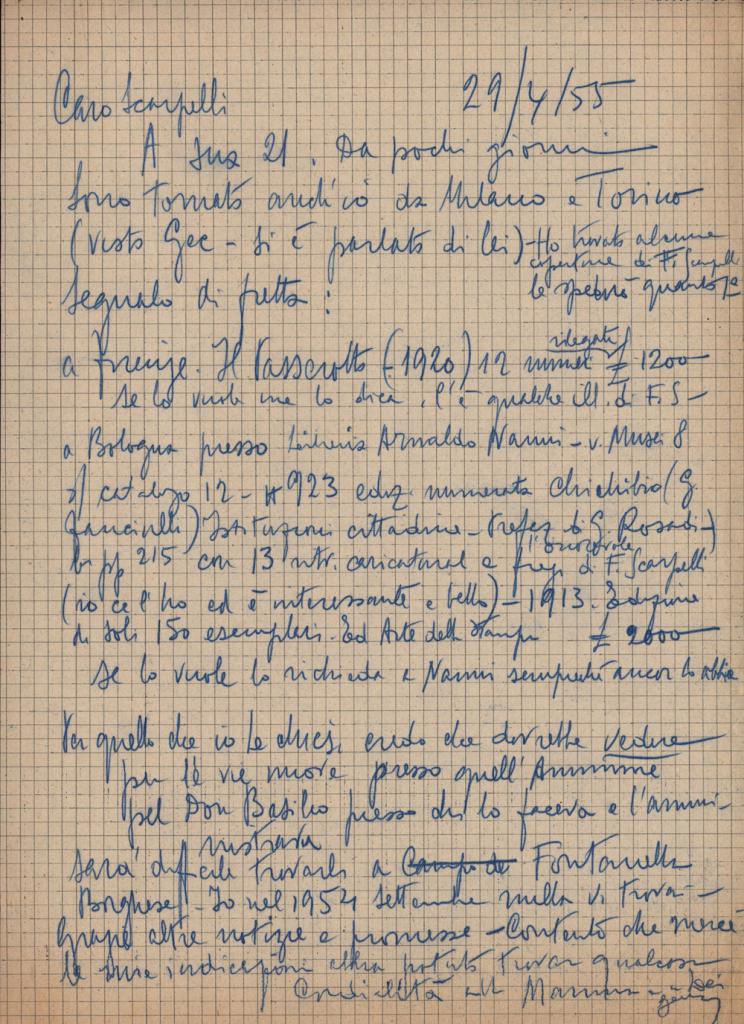 29/4/55
Caro Scarpelli
A sua 21. Da pochi giorni
sono tornato anch'io da Milano e Torino
(visto Gec - si è parlato di lei) - Ho trovato alcune
copertine di F. Scarpelli
le spedirò quanto p.a
Segnalo di fretta:
a Firenze. Il Passerotto (-1920) 12 numeri rilegati £ 1200
Se lo vuole me lo dica, c'è qualche ill. di F. S -
a Bologna presso Libreria Arnaldo Nanni - v. Musei 8
s/ catalogo 12 - n 923 ediz. numerata Chichibio (G.
Fanciulli) Istituzioni cittadine - Prefaz. di G. Rosadi -)
in pp 215 con 13 ritr. caricatural e fregi di F. Scarpelli
(io ce l'ho ed è interessante e bello) - 1913. Edizione
di soli 150 esemplari. Ed Arte della Stampa £ 2000
Se lo vuole lo richieda a Nanni sempreché ancor lo abbia
Per quello che io le chiesi, credo che dovrebbe vedere
per le vie nuove presso quell'Amminne
pel Don Basilio presso chi lo faceva e l'ammi-
nistrava
Sarà difficile trovarli a Campo de Fontanella
Borghese - Io nel 1954 Settembre nulla vi trovai -
Grazie altre notizie e promesse - Contento che mercè
le mie indicazioni abbia potuto trovar qualcosa
Cordialità alla Mamma e a Lei